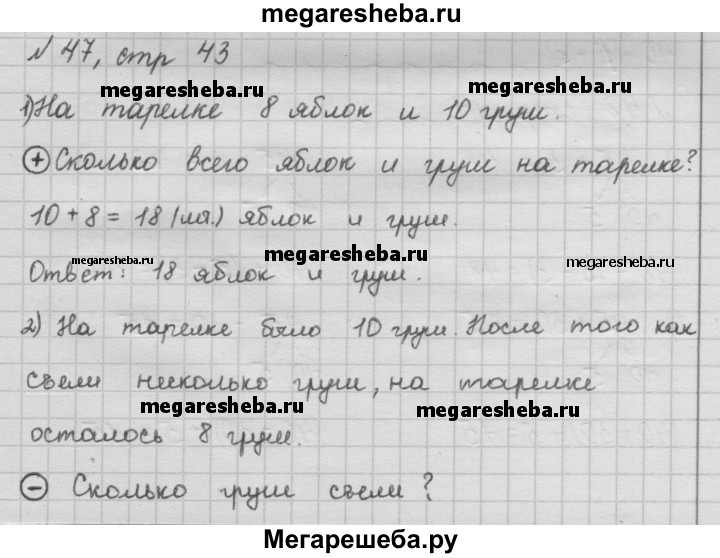 megaresheba.ru
№ 47, стр 43
megaresheba.ru
1) На тарелке 8 яблок и 10 груш.
megaresheba.ru
+ Сколько всего яблок и груш на тарелке?
10 + 8 = 18 (шт.) яблок и груш.
megaresheba.ru
megaresheba.ru
megaresheba.ru
Ответ: 18 яблок и груш.
2) На тарелке было 10 груш. После того как
съели несколько груш, на тарелке
megaresheba.ru
megaresheba.ru
осталось 8 груш.
- Сколько груш съели?
Мегарешеба.ру